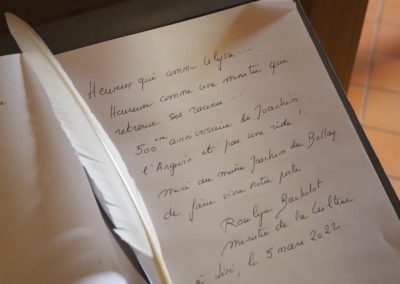 Heureux qui comme Ulysse....
Heureuse comme une ministre qui
retrouve ses racines....
500ème anniversaire de Joachim
l'Angevin et pas une ride !
merci au musée Joachim du Bellay
de faire vivre notre poète
Roselyne Bachelot
ministre de la Culture
à Liré, le 5 mars 2022